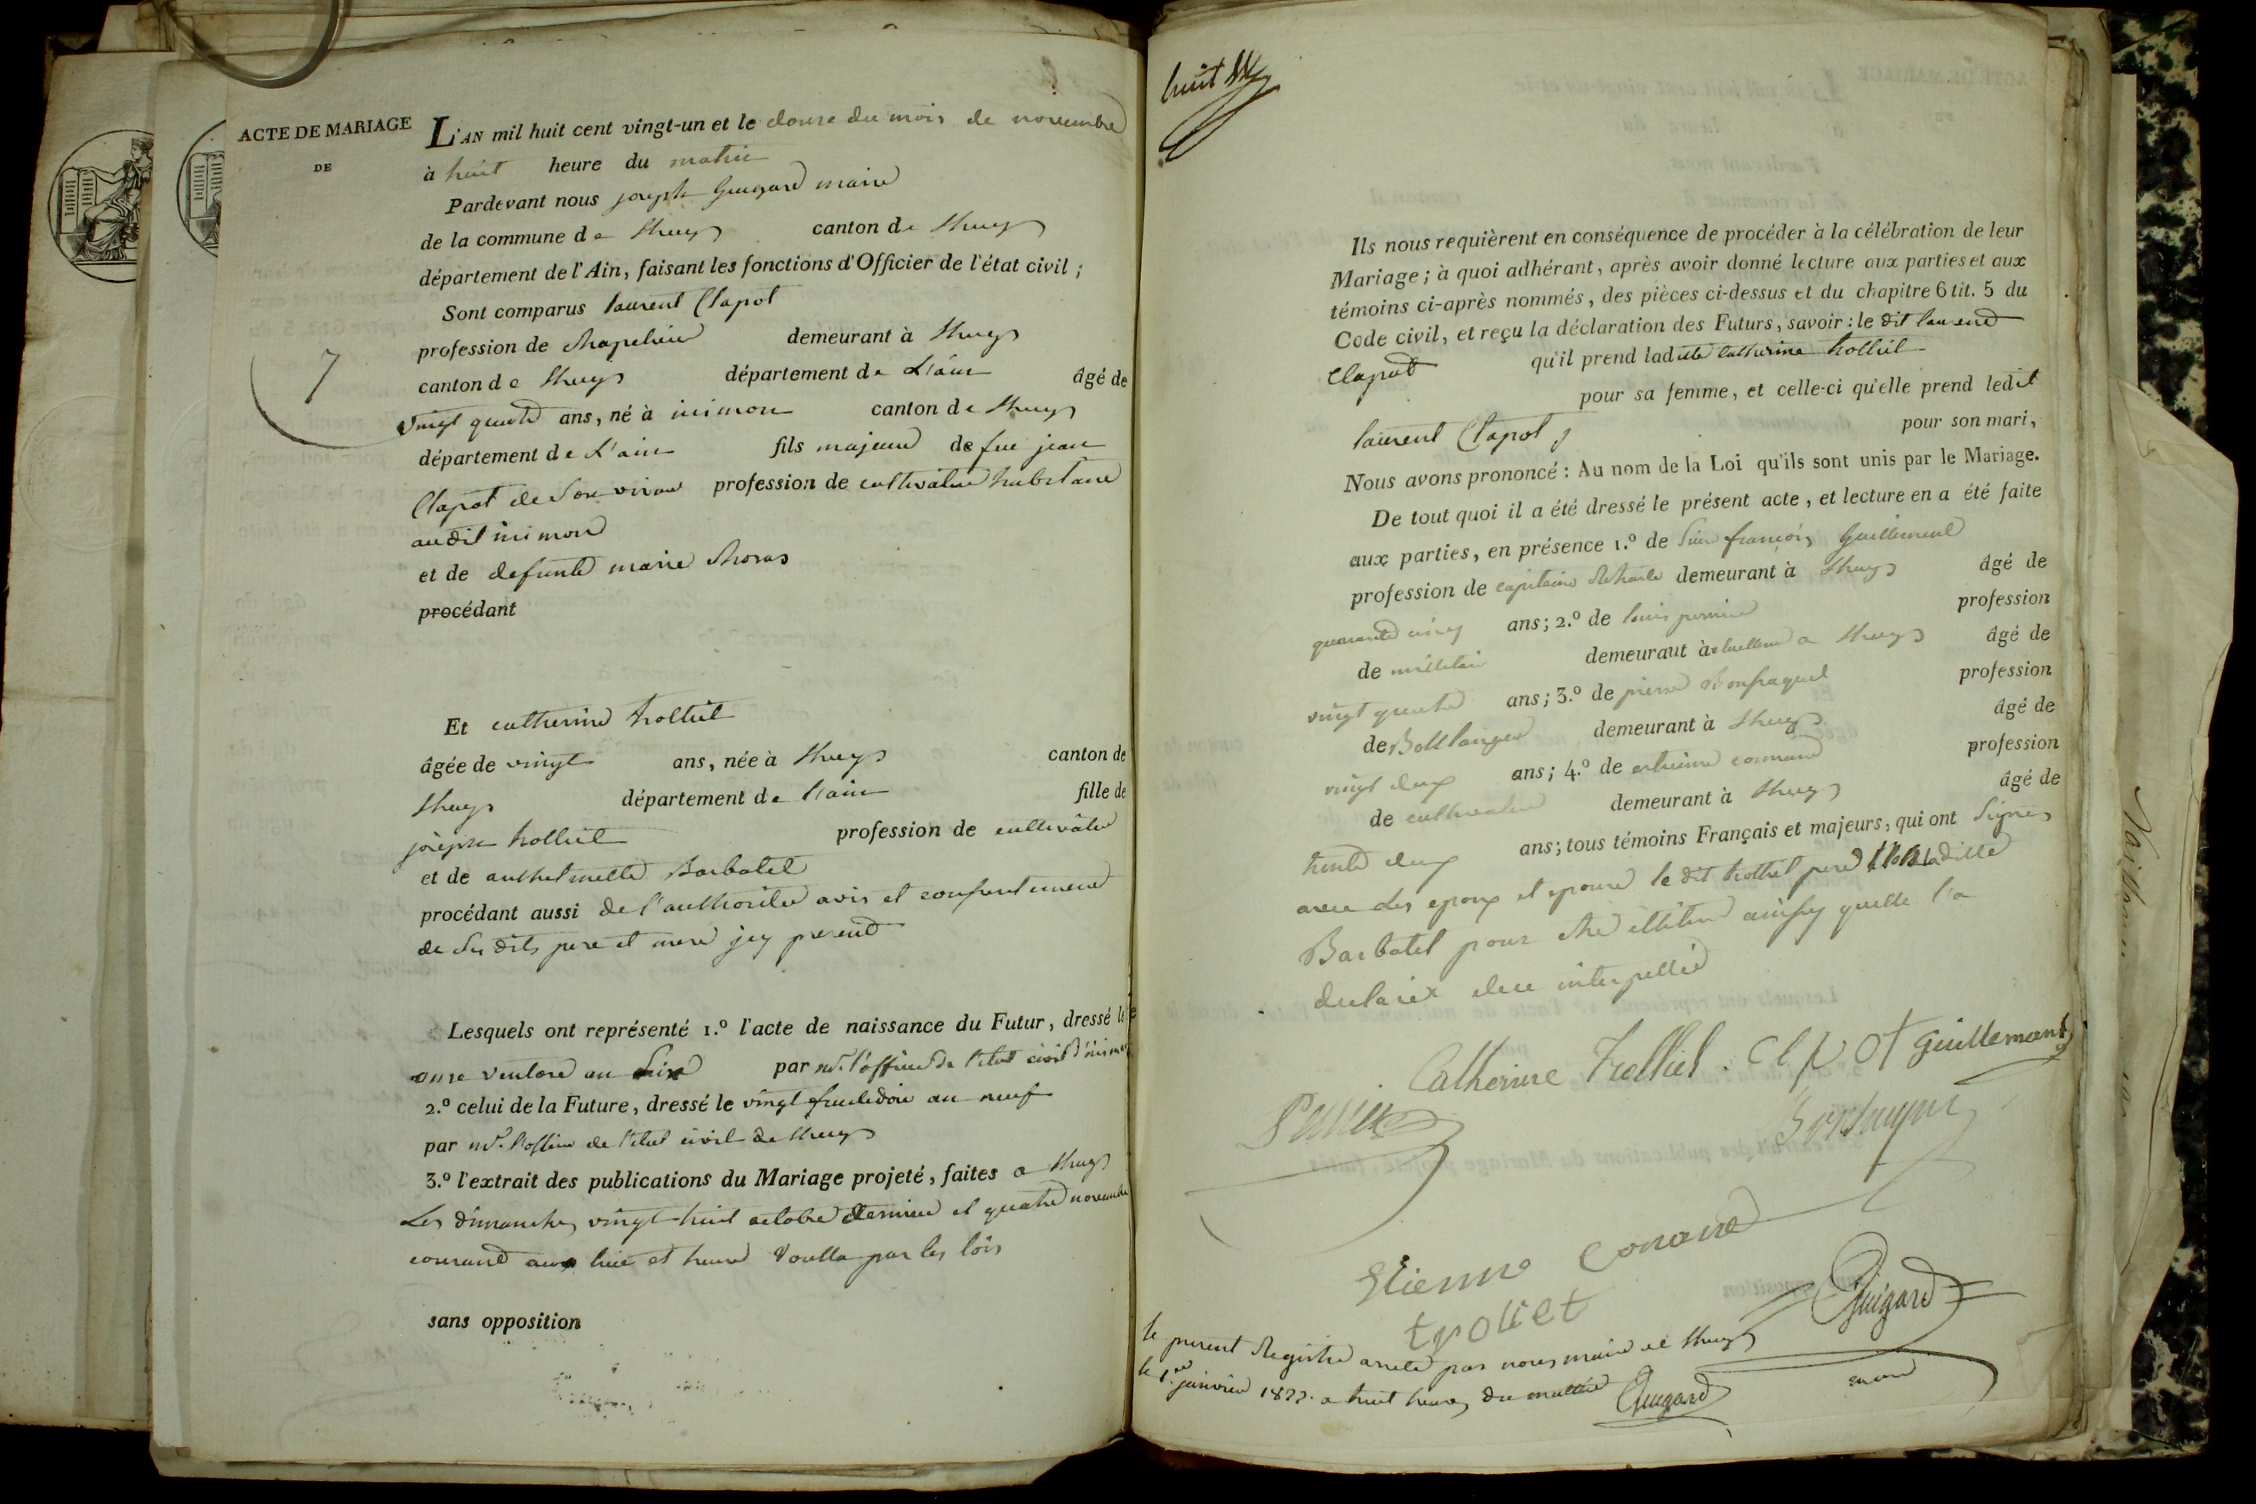 ACTE DE MARIAGE
DE
7
L'AN mil huit cent vingt-un et le douze du mois de novembre
à huit heure du matin
Pardevant nous joseph Guigard maire
de la commune de lhuys canton de lhuys
département de l'Ain, faisant les fonctions d'Officier de l'état civil ;
Sont comparus laurent Clapot
profession de Chapelier demeurant à lhuys
canton de lhuys département de L'ain âgé de
vingt quatre ans, né à inimon canton de lhuys
département de L'ain fils majeur de feu jean
Clapot de Son vivant profession de cultivateur
audit inimon
et de defunte marie
procédant
Et catherine trolliet
âgée de vingt ans, née à lhuys canton de
lhuys département de l'ain fille de
joseph trolliet profession de cultivateur
et de anthelmette Barbolet
procédant aussi de l'authoritée avis et consentement
de Ses dits pere et mere jcy present
Lesquels ont représenté 1.º l'acte de naissance du Futur, dressé le
onze ventose an par Mr. l'officier de l'état civil d'inimon
2.º celui de la Future, dressé le vingt fructidor an neuf
par Mr. l'officier de l'état civil de lhuys
3.º l'extrait des publications du Mariage projeté, faites a lhuys
Les dimanches vingt huit octobre dernier et quatre novembre
courant aux lieu et heure Voullu par les lois
sans opposition
huit
Ils nous requièrent en conséquence de procéder à la célébration de leur
Mariage ; à quoi adhérant, après avoir donné lecture aux parties et aux
témoins ci-après nommés, des pièces ci-dessus et du chapitre 6 tit. 5 du
Code civil, et reçu la déclaration des Futurs, savoir : le dit laurent
Clapot qu'il prend ladite Catherine trolliet
pour sa femme, et celle-ci qu'elle prend ledit
laurent Clapot pour son mari,
Nous avons prononcé : Au nom de la Loi qu'ils sont unis par le Mariage.
De tout quoi il a été dressé le présent acte, et lecture en a été faite
aux parties, en présence 1.º de Sieur françois Guillemend
profession de capitaine demeurant à lhuys âgé de
quarante cinq ans ; 2.º de louis perrier profession
de militaire demeuraut à lhuys âgé de
vingt quatre ans ; 3.º de pierre profession
de Boullanger demeurant à lhuys âgé de
vingt deux ans ; 4.º de etienne connand profession
de cultivateur demeurant à lhuys âgé de
trente deux ans ; tous témoins Français et majeurs, qui ont Signés
avec les epoux et epouse le dit trolliet pere laditte
Barbolet pour etre illitere ainsy quelle l'a
declaré de ce interpellée
Catherine Trolliet. Clapot Guillemand
Etienne Conand
trolliet
Guigard
le present Registre arreté par nous maire de lhuys
le 1.er janvier 1822 a huit heures du mattin Guigard maire